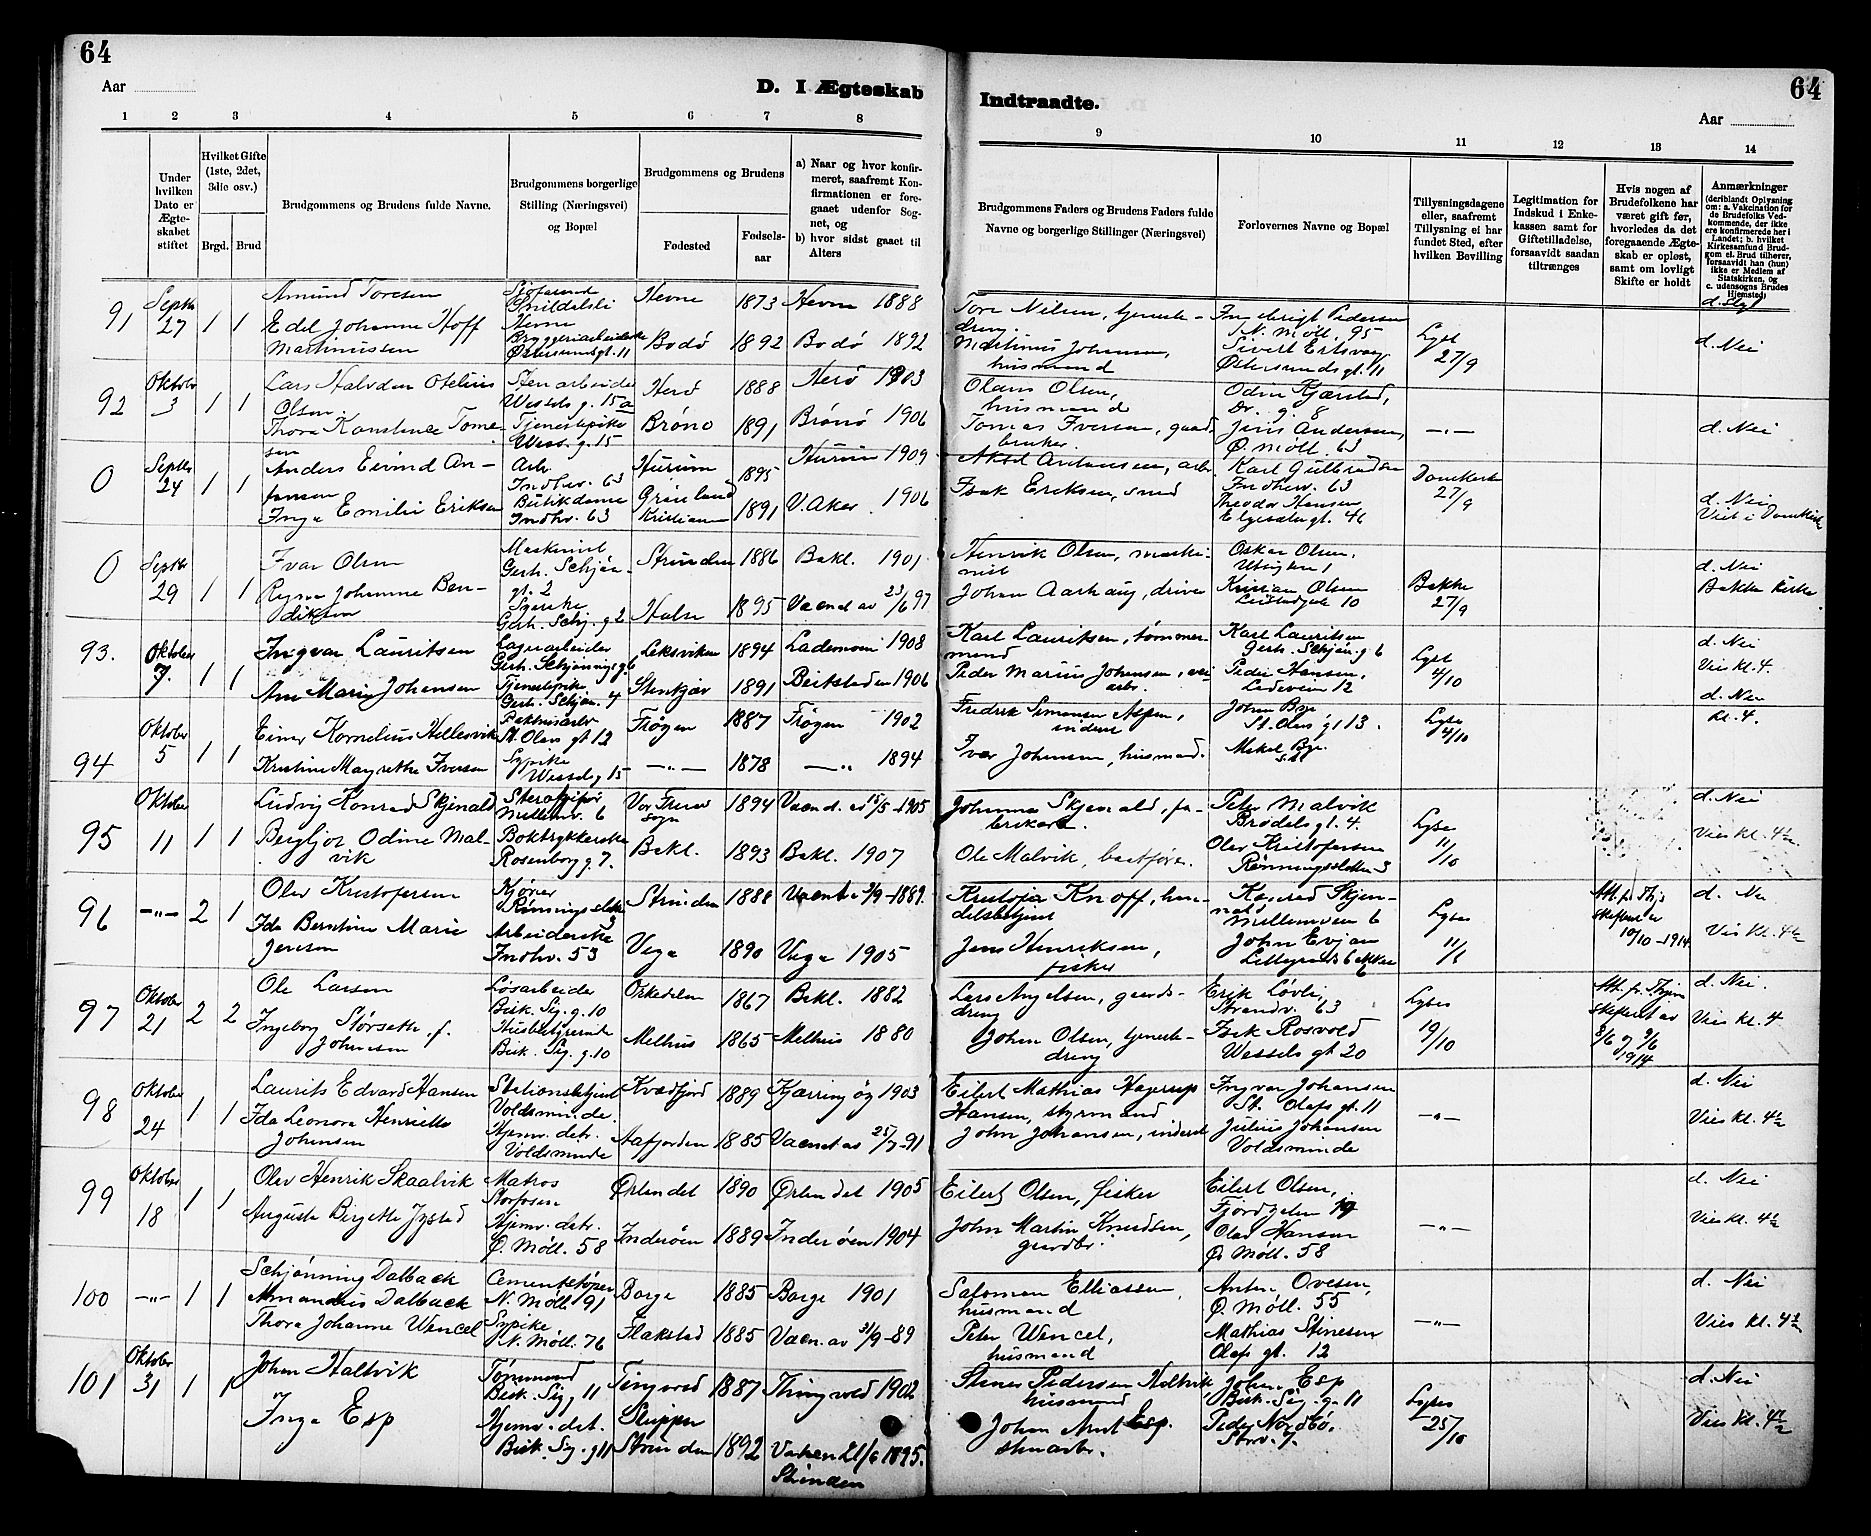 64
Aar
D. I Ægteskab
1 2 3 4 5 6 7 8
Under hvilken Dato er Ægteskabet stiftet
Hvilket Gifte (1ste, 2det, 3die osv.)
Brgd. Brud
Brudgommens og Brudens fulde Navne.
Brudgommens borgerlige Stilling (Næringsvei) og Bopæl
Brudgommens og Brudens
Fødested
Fødselsaar
a) Naar og hvor konfirmeret, saafremt Konfirmationen er foregaaet udenfor Sognet, og
b) hvor sidst gaaet til Alters
91 Septbr 27 1 1
Amund Toresen
Hevne 1873 Hevne 1888
Edel Johanne Hoff Martinussen
Østersundsgt. 11
Bodø 1892 Bodø 1892
92 Oktober 3 1 1
Lars Halvdan Otelius Olsen
Stenarbeider Wessels g. 15a
Herø 1888 Herø 1903
Thora Konstance Tomesen
Tjenestepike Wess. g. 15
Brønø 1891 Brønø 1906
0 Septbr 24 1 1
Anders Eivind Antonsen
Arb. Indhv. 63
Hurum 1895 Hurum 1909
Inga Emilie Eriksen
Butikdame Indhv. 63
Grønland Kristiania 1891 V. Aker 1906
0 Septbr 29 1 1
Ivar Olsen
Maskinist Gerh. Schjøn. gt. 2
Strinden 1886 Bakl. 1901
Johanne Bendiksen
Syerske Gerh. Schj. g 2
Halsa 1895 Vacend av 23/6 97
93. Oktober 7. 1 1
Ingvar Lauritsen
Lagerarbeider Gerh. Schjønings g. 6
Leksviken 1894 Lademoen 1908
Ane Marie Johansen
Tjenestepike Gerh. Schjøn. 4
Stenkjær 1891 Beitstaden 1906
94 Oktober 5 1 1
Einar Kornelius Hellesvik
Pakhusarb. St. Olavs gt. 12
Frøyen 1887 Frøyen 1902
Kristine Margrethe Iversen
Sypike Wessels g 15
—„— 1878 —„— 1894
95 Oktober 11 1 1
Ludvig Konrad Skjenald
Mellemv. 6
Vor Frue sogn 1894 Vacend. av 15/5 1905
Bergljot Odine Malvik
Boktrykkerske Rosenborg g. 7.
Bakl. 1893 Bakl. 1907
96 —„— 2 1
Olav Kristofersen
Kjører Rønningsletten 3
Strinden 1888 Vacent 2/9-1889.
Ida Berntine Marie Jensen
Arbeiderske Indhv. 53
Vega 1890 Vega 1905
97 Oktober 21 2 2
Ole Larsen
Løsarbeider Bisk. Sig. g. 10
Orkedalen 1867 Bakl. 1882
Ingeborg Størseth f. Johnsen
Husbestyrerinde Bisk. Sig. g. 10
Melhus 1865 Melhus 1880
98 Oktober 24 1 1
Laurits Edvard Hansen
Stationsbetjent Voldsminde.
Kvædfjord 1889 Kjærringøy 1903
Ida Leonora Henriette Johansen
Hjemv. datr. Voldsminde
Aafjorden 1885 Vacent av 25/7-91
99 Oktober 18 1 1
Olav Henrik Skaalvik
Matros Storfosen
Ørlandet 1890 Ørlandet 1905
Augusta Birgitte Jystad
Hjemv. datr. Ø. Møll. 58
Inderøen 1889 Inderøen 1904
100 —„— 1 1
Schjønning Dalback Amandus Dalback
Cementstøper N. Møll. 91
Borge 1885 Borge 1901
Thora Johanne Wencel
Sypike N. Møll. 76
Flakstad 1885 Vacn. av 31/9-89
101 Oktober 31 1 1
Johan Haltvik
Tømmermand Bisk. Sig. 11
Tingvold 1887 Thingvold 1902
Inga Esp
Hjemv. dat. Bisk. Sig. g 11
Sluppen Strinden 1892 21/6 1895. Strinden
64
Indtraadte.
Aar
9 10 11 12 13 14
Brudgommens Faders og Brudens Faders fulde Navne og borgerlige Stillinger (Næringsvei)
Forlovernes Navne og Bopæl
Tillysningsdagene eller, saafremt Tillysning ei har fundet Sted, efter hvilken Bevilling
Legitimation for Indskud i Enkekassen samt for Giftetilladelse, forsaavidt saadan tiltrænges
Hvis nogen af Brudefolkene har været gift før, hvorledes da det foregaaende Ægteskab er opløst, samt om lovligt Skifte er holdt
Anmærkninger (deriblandt Oplysning om: a. Vakcination for de Brudefolks Vedkommende, der ikke ere konfirmerede her i Landet; b. hvilket Kirkesamfund Brudgom el. Brud tilhører, forsaavidt han (hun) ikke er Medlem af Statskirken, og c. udensogns Brudes Hjemsted)
Tore Nilsen, gaarddreng.
Ingebrigt Pedersen N. Møll. 95
Martinus Johansen, husmand
Sivert Ertsvaag Østersundsgt. 11
Lyst 27/9
d. Nei
Olaus Olsen, husmand
Odin Kjærstad,
Tomas Iversen, gaardbruker
Jens Andersen, Ø. Møll. 63
—„—
d. Nei
Aksel Antonsen, arb.
Karl Gulbrandsen Indherv. 63
Isak Eriksen, smed
Theodor Hansen Elgesetergt. 46
Domkirken 27/9
d. Nei
Viet i Domkirken
Henrik Olsen, maskinist
Oskar Olsen,
Johan Aarhaug,
Kristian Olsen
Bakke 27/9
d. Nei
Bakke kirke
Karl Lauritsen, tømmermand
Karl Lauritsen Gerh. Schjøn. g 6
Peder Marius Johansen,
Peder Hansen, Ladeveien 12
Lyst 4/10
d. Nei
Vies kl. 4.
Fredrik Simonsen Aspen, inderst
Johan Bye St. Olavs g. 13.
Ivar Johansen, husmand.
Mikal Bye
Lyst 4/10
d. Nei
kl. 4.
Johannes Skjenald, fabrikarb.
Peter Malvik Brødels gt. 4.
Ole Malvik, baatfører.
Olav Kristofersen Rønningsletten 3
Lyst 11/10
d. Nei
Vies kl. 4½
Kristofer Knoff, handelsbetjent
Konrad Skjenald Mellemveien 6
Jens Henriksen, fisker
John Evjan
Lyst 11/
Att. fr. Skifteret av 10/10-1914
d. Nei
Vies kl. 4½
Lars Angelsen, gaarddreng
Erik Løvli, Strandv. 63
Johan Olsen,
Isak Rosvold Wessels gt 20
Lyses 19/10
Att. fr. Skifteret av 8/6 og 9/6 1914
d. Nei.
Vies kl. 4
Eilert Mathias Hagerup Hansen, styrmand
Ingvar Johansen St. Olafs gt. 11
John Johansen, inderst
Julius Johansen Voldsminde
—„—
d. Nei
Vies kl. 4½
Eilert Olsen, fisker
Eilert Olsen, Fjordgaten 19
John Martin Knudsen, gaardbr.
Olav Hansen Ø. Møll. 58
—„—
d. Nei
Vies kl. 4½
Salomon Elliassen, husmand
Anton Ovesen, Ø. Møll. 55
Peter Wencel, husmand
Mathias Stinesen Olafs gt. 12
—„—
d. Nei
Vies kl. 4½
Stener Pedersen Haltvik husmand
Johan Esp Bisk. Sig. g. 11
Johan Arnt Esp. stenarbr.
Peder Nordbø. Storv. 7.
Lyses 25/10
d. Nei
Vies kl. 4½